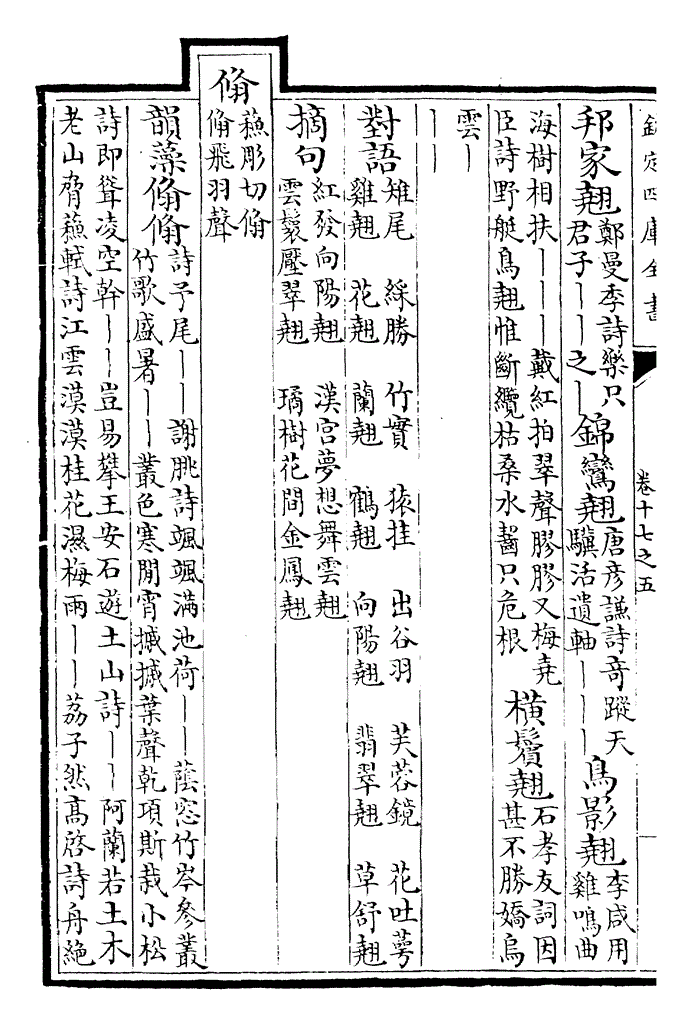 欽定四庫全書 卷十七之五
邦家翹 鄭曼季詩樂只君子丨丨之丨 錦鸞翹 唐彦謙詩奇蹤天驥活遺軸丨丨丨 鳥影翹 李咸用雞鳴曲
海樹相扶丨丨丨戴紅拍翠聲膠膠又梅堯臣詩野艇鳥翹惟斷纜枯桑水齧只危根 橫鬢翹 石孝友詞因甚不勝嬌烏
雲丨丨丨
對語 雉尾 雞翹 綵勝 花翹 竹實 蘭翹 猿挂 鶴翹 出谷羽 向陽翹 芙蓉鏡 翡翠翹 花吐萼 草舒翹
摘句 紅發向陽翹 雲鬟壓翠翹 漢宫夢想舞雲翹 璚樹花間金鳳翹
翛 蘓彫切翛翛飛羽聲
韻藻 翛翛 詩予尾丨丨謝朓詩颯颯滿池荷丨丨蔭窓竹岑參叢竹歌盛暑丨丨叢色寒閒宵摵摵葉聲乾項斯栽小松
詩即聳凌空幹丨丨豈易攀王安石遊土山詩丨丨阿蘭若土木老山脅蘓軾詩江雲漠漠桂花濕梅雨丨丨荔子然高啓詩舟絕